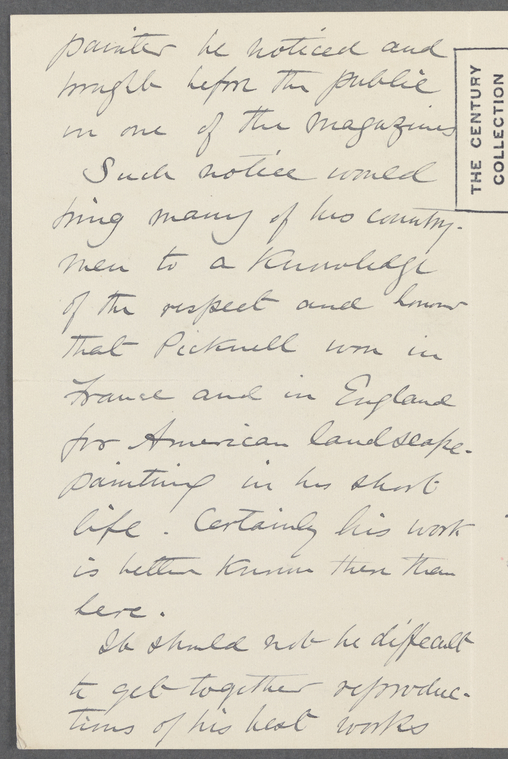 painter be noticed and
brought before the public
in one of the magazines
Such notice would
bring many of his country-
men to a knowledge
of the respect and honor
that Picknell won in
France and in England
for American landscape-
painting in his short
life. Certainly his work
is better known there than
here.
It should not be difficult
to get together reproduc-
tions of his best works
THE CENTURY
COLLECTION